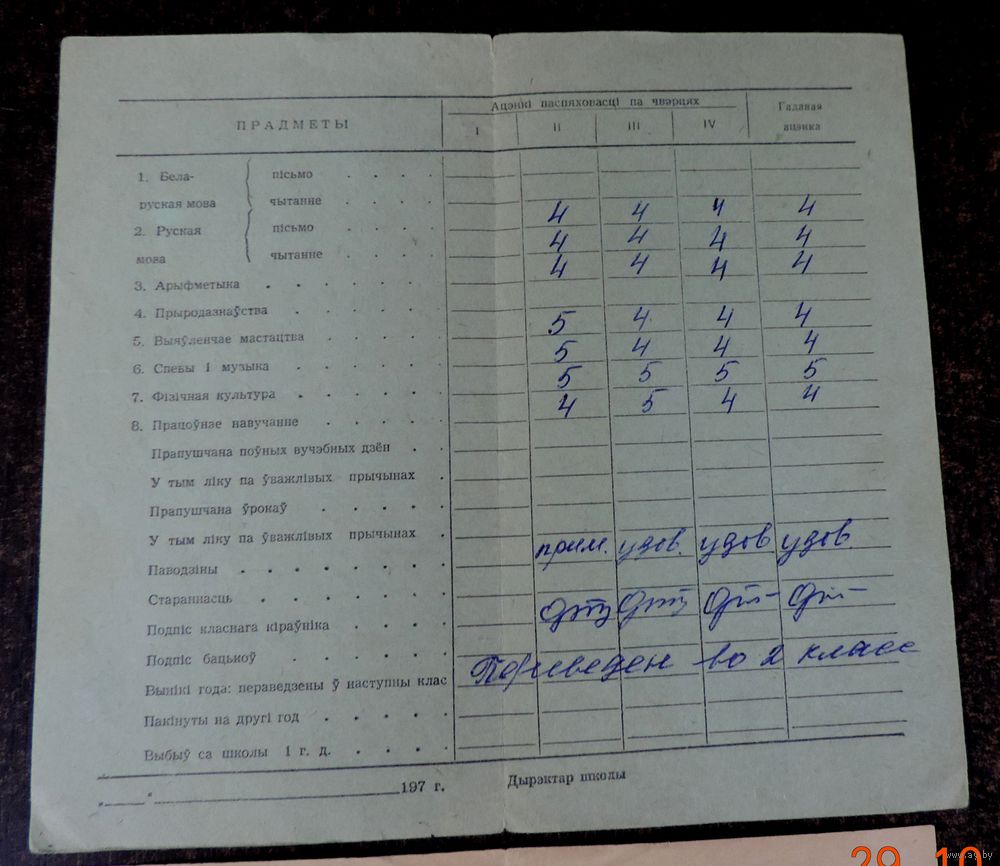 ПРАДМЕТЫ
Ацэнкі паспяховасці па чвэрцях
Гадавая
ацэнка
I II III IV
1. Бела-
руская мова
пісьмо . . . .
чытанне . . . . 4 4 4 4
2. Руская
мова
пісьмо . . . . 4 4 4 4
чытанне . . . . 4 4 4 4
3. Арыфметыка . . . . . . .
4. Прыродазнаўства . . . . . 5 4 4 4
5. Выяўленчае мастацтва . . . . 5 4 4 4
6. Спевы і музыка . . . . . 5 5 5 5
7. Фізічная культура . . . . . 4 5 4 4
8. Працоўнае навучанне . . . .
Прапушчана поўных вучэбных дзён . .
У тым ліку па ўважлівых прычынах .
Прапушчана ўрокаў . . . . .
У тым ліку па ўважлівых прычынах . прим. удов. удов удов.
Паводзіны . . . . . . .
Стараннасць . . . . . . .
Подпіс класнага кіраўніка . . . .
Подпіс бацькоў . . . . .
Переведен во 2 класс
Вынікі года: пераведзены ў наступны клас
Пакінуты на другі год . . . . .
Выбыў са школы 1 г. д. . . . .
„ “ 197 г.
Дырэктар школы
www.ay.by